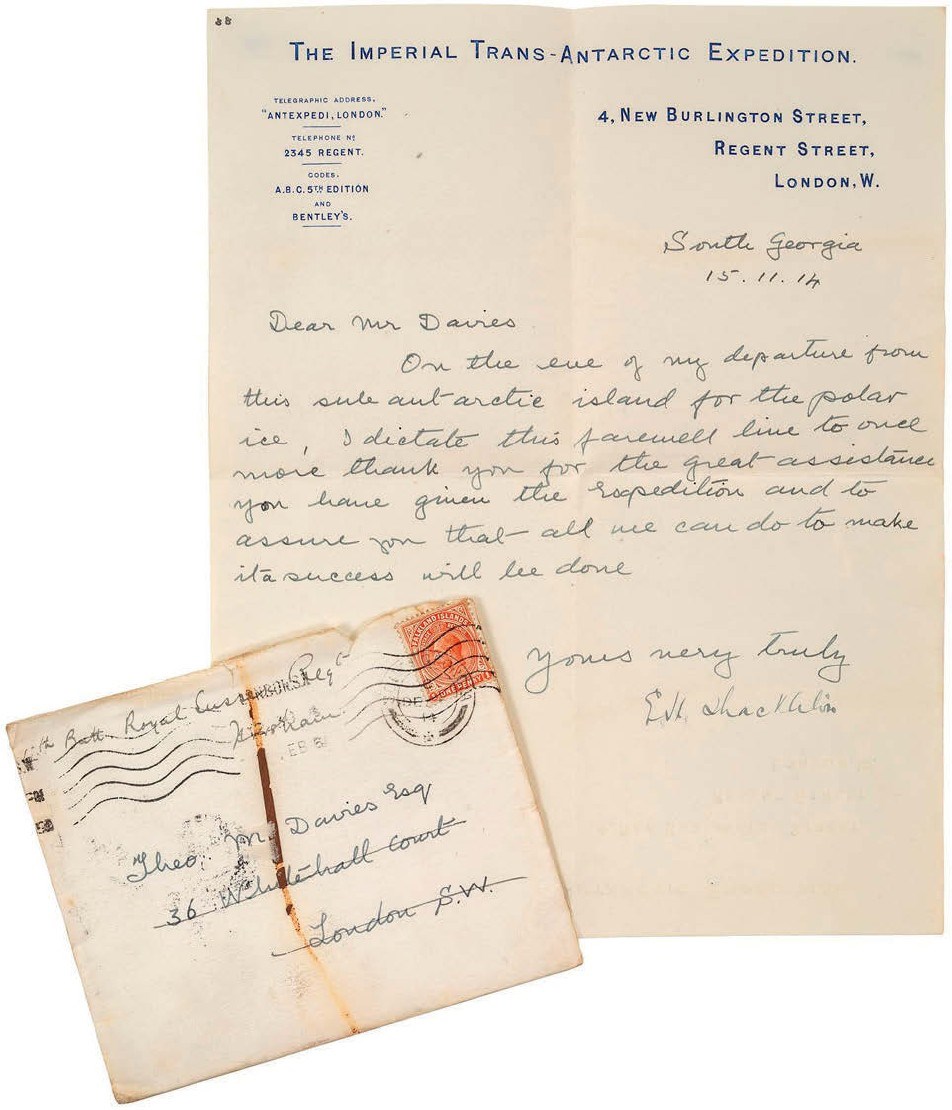 THE IMPERIAL TRANS-ANTARCTIC EXPEDITION.
TELEGRAPHIC ADDRESS,
"ANTEXPEDI, LONDON."
TELEPHONE Nº
2345 REGENT.
CODES.
A.B.C. 5TH EDITION
AND
BENTLEY'S.
4, NEW BURLINGTON STREET,
REGENT STREET,
LONDON, W.
South Georgia
15.11.14
Dear Mr Davies
On the eve of my departure from
this sub ant-arctic island for the polar
ice, I dictate this farewell line to once
more thank you for the great assistance
you have given the Expedition and to
assure you that all we can do to make
it a success will be done
Yours very truly
E.H. Shackleton
FALKLAND ISLANDS
ONE PENNY
Batt. Royal Sussex Regt
Theo. M. Davies Esq
36 Whitehall Court
London S.W.